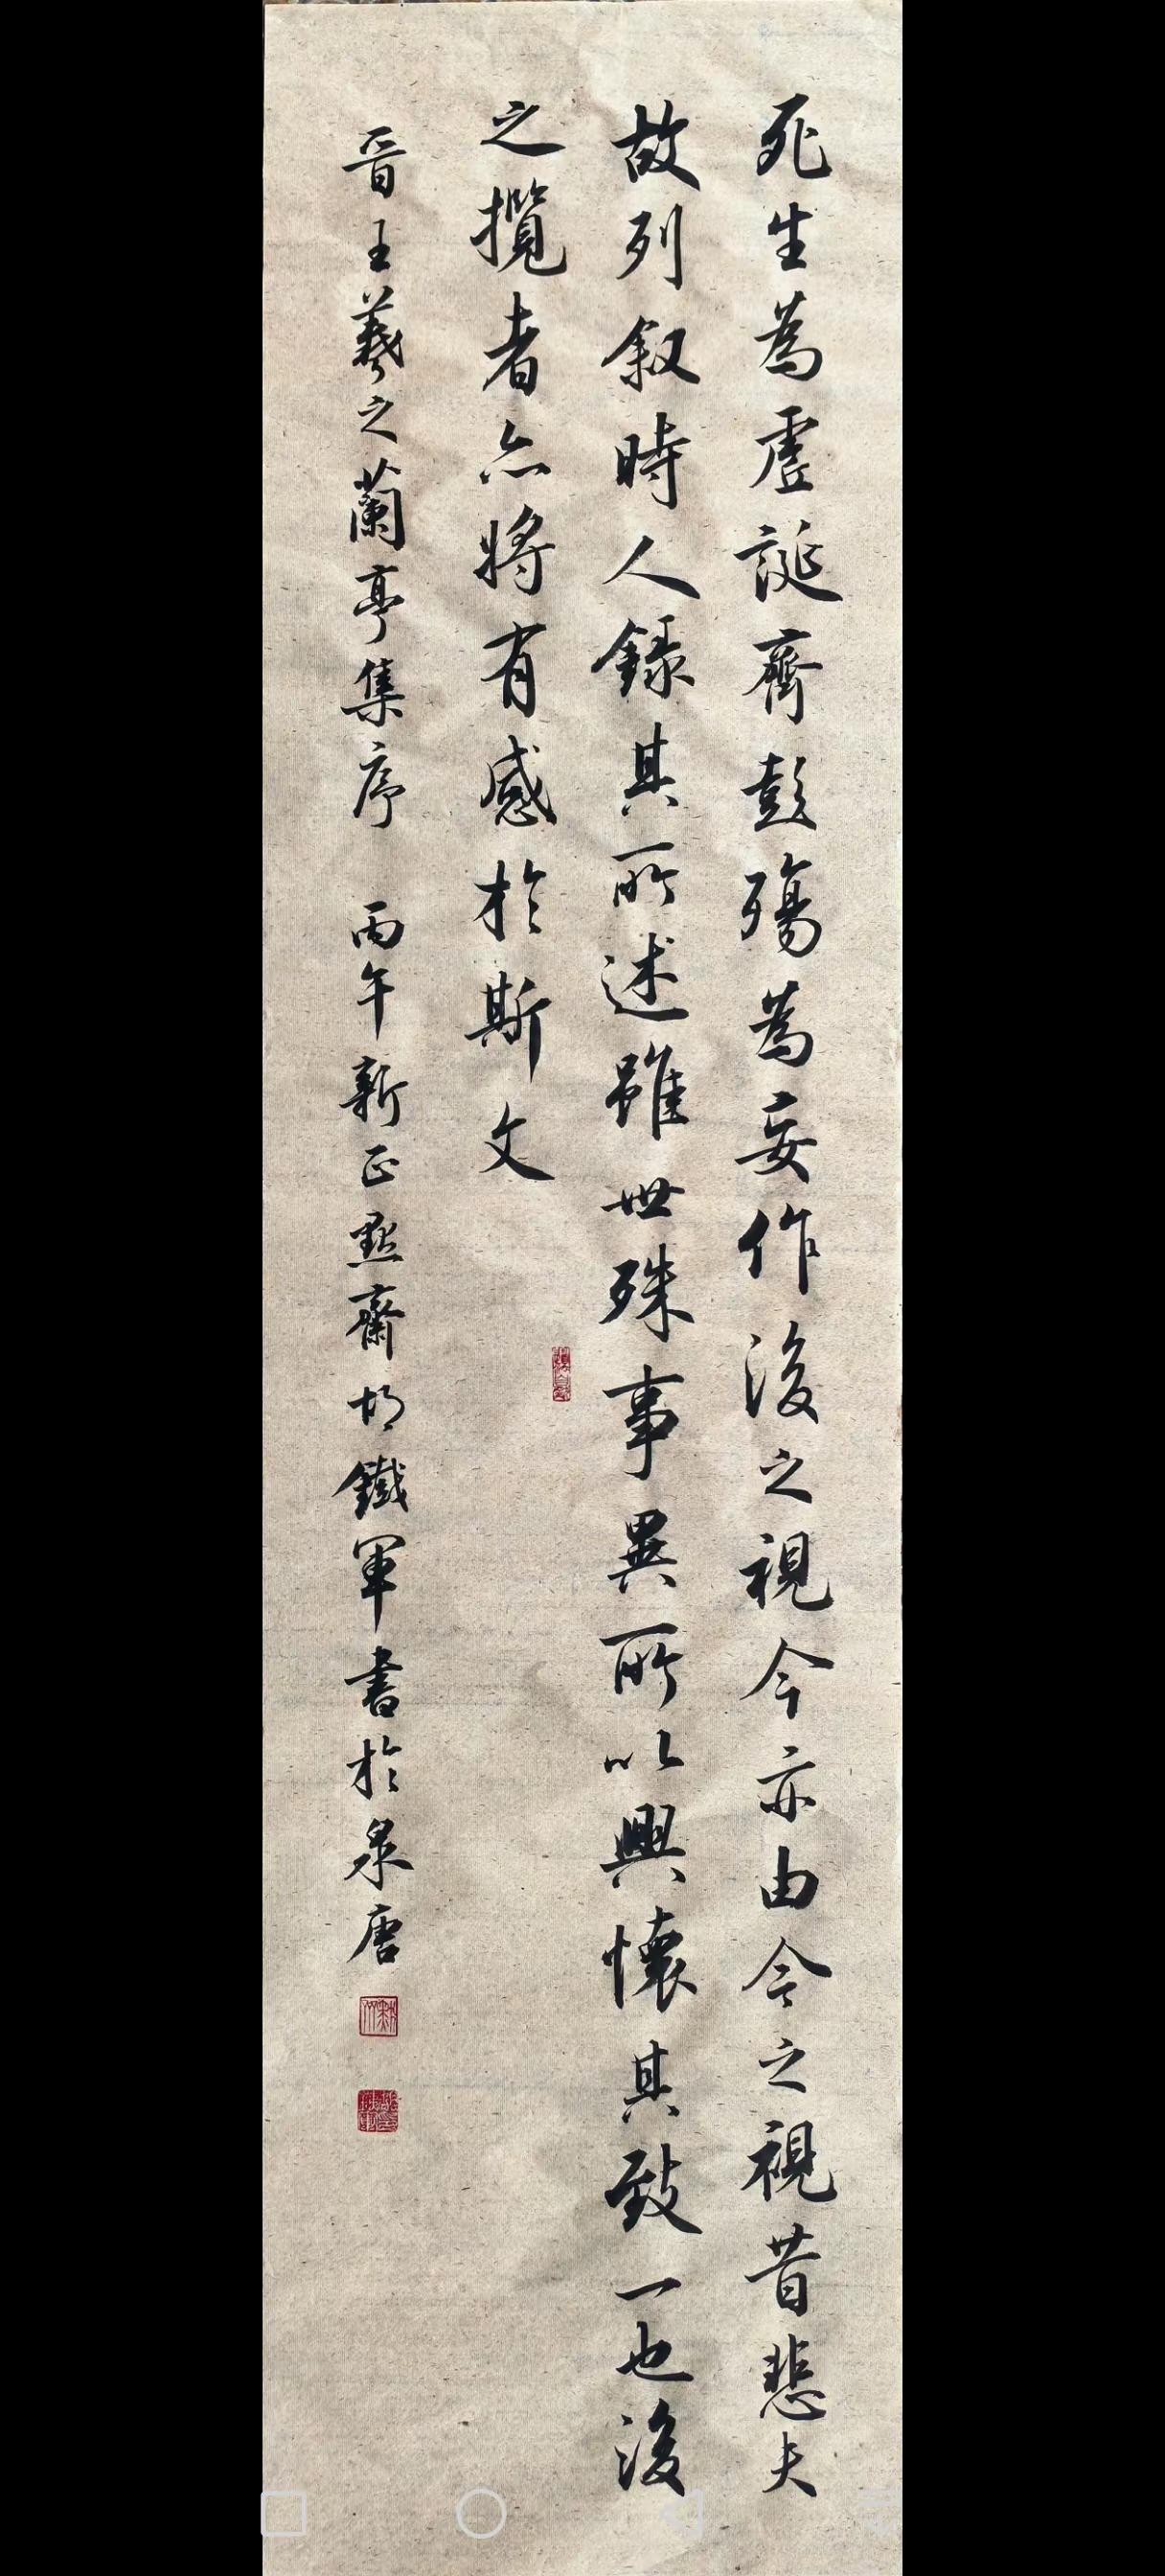 死生為虛誕齊彭殤為妄作後之視今亦由今之視昔悲夫
故列叙時人錄其所述雖世殊事異所以興懷其致一也後
之攬者亦將有感於斯文
晉王羲之蘭亭集序 丙午新正點齋胡鐵軍書於泉唐